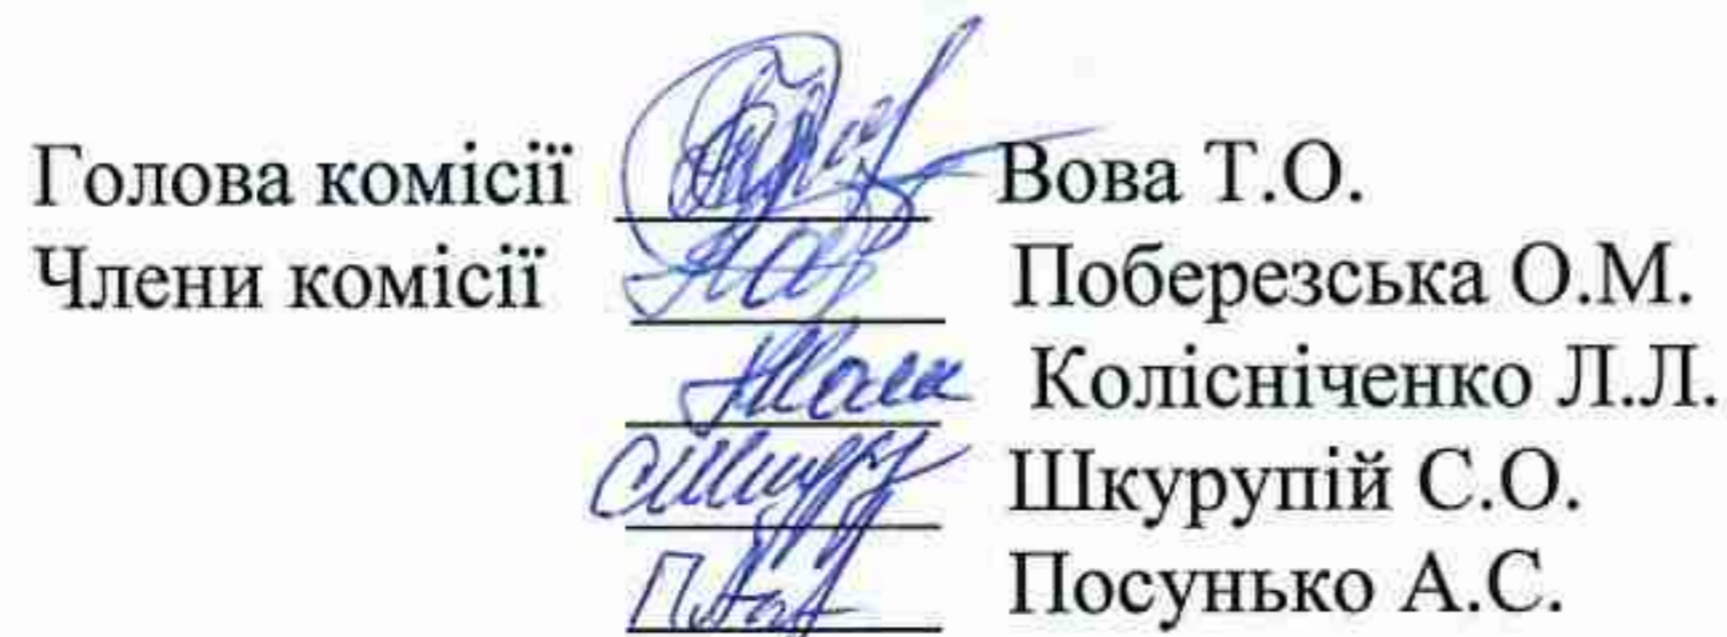 Голова комісії Вова Т.О.
Члени комісії Поберезська О.М.
Колісніченко Л.Л.
Шкурупій С.О.
Посунько А.С.